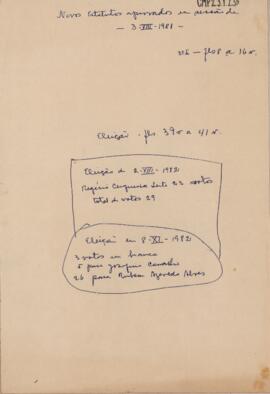 CMP2.3.1.239
Novos Estatutos aprovados em sessão de
— 3-VIII-1981 —
fls 8 a 16 v.
Eleição - fls. 39 v a 41 v.
Eleição de 2-VIII-1982
Rogério Cerqueira Leite 23 votos
total de votos 29
Eleição em 8-XI-1982
3 votos em branco
5 para Joaquim
26 para Rubem Azevedo Alves